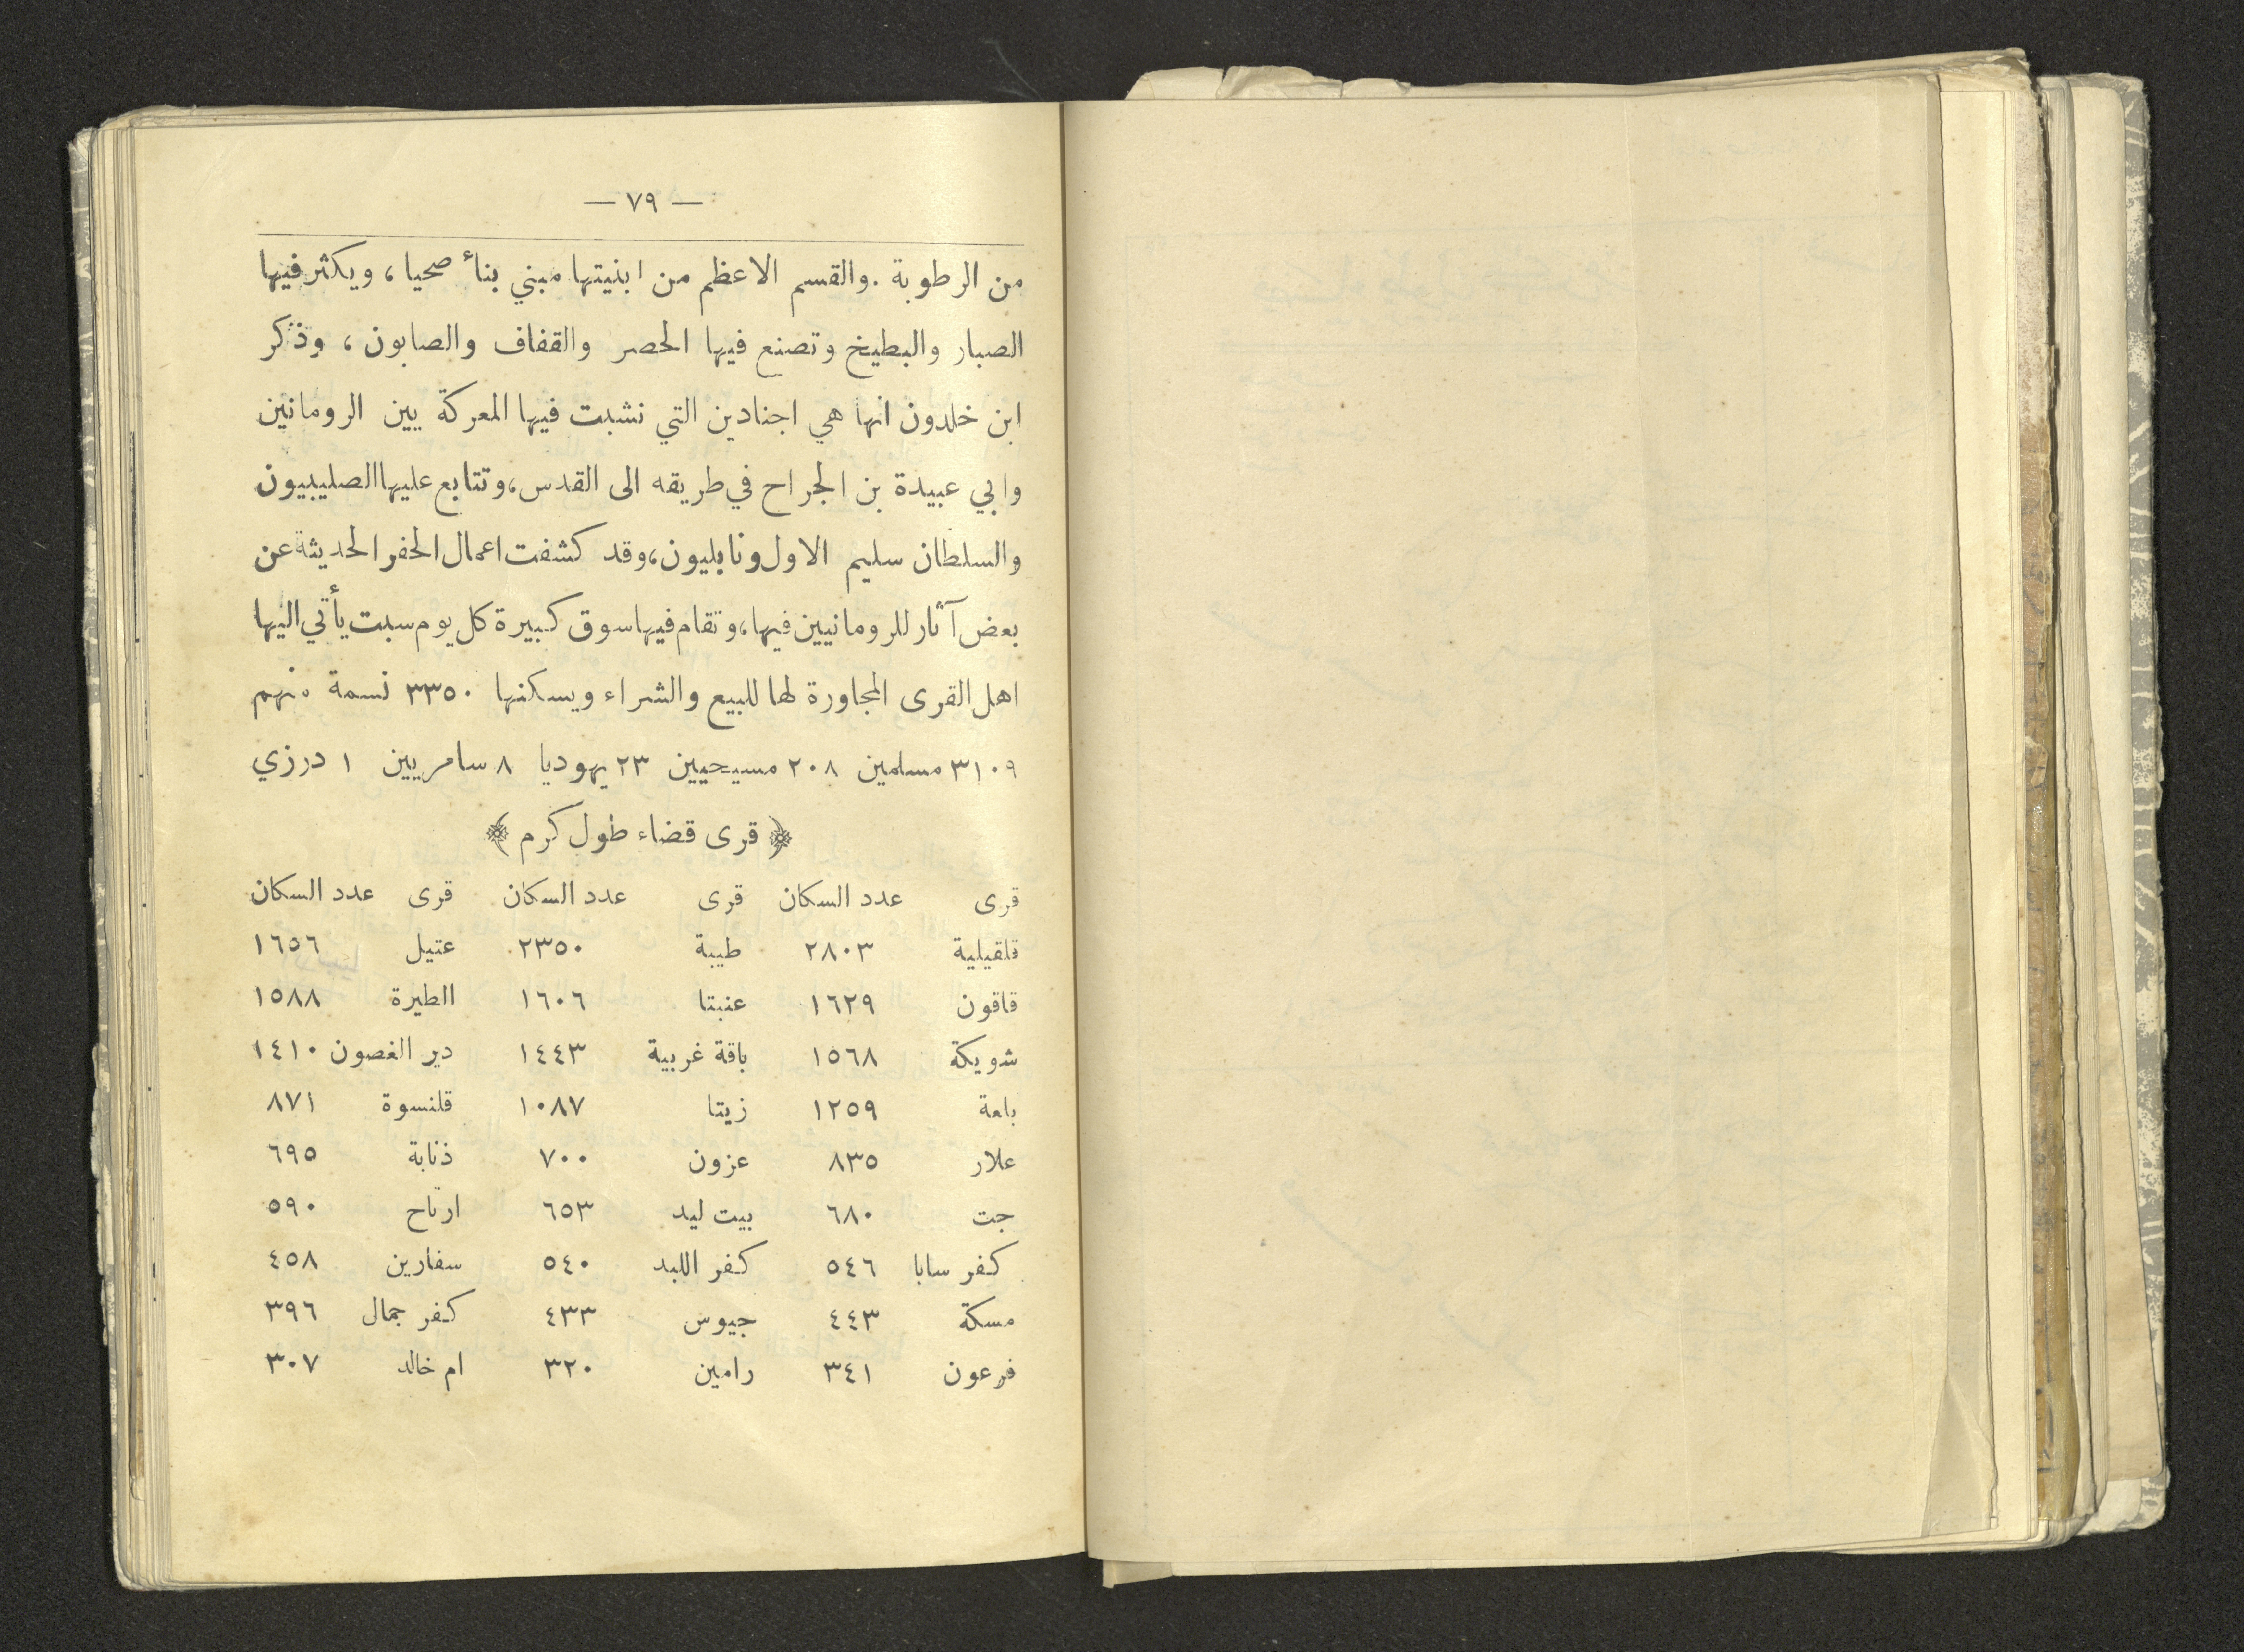 — ٧٩ —
من الرطوبة . والقسم الاعظم من ابنيتها مبني بناأ صحيا ، ويكثر فيها
الصبار والبطيخ وتصنع فيها الحصر والقفاف والصابون ، وذكر
ابن خلدون انها هي اجنادين التي نشبت فيها المعركة بين الرومانين
وابي عبيدة بن الجراح في طريقه الى القدس ، وتتابع عليها الصليبيون
والسلطان سليم الاول ونابليون ، وقد كشفت اعمال الحفر الحديثة عن
بعض آثار للرومانيين فيها ، وتقام فيها سوق كبيرة كل يوم سبت يأتي اليها
اهل القرى المجاورة لها للبيع والشراء ويسكنها ٣٣٥٠ نسمة منهم
٣١٠٩ مسلمين ٢٠٨ مسيحيين ٢٣ يهوديا ٨ سامريين ١ درزي
﴿ قرى قضاء طول كرم ﴾
قرى عدد السكان قرى عدد السكان قرى عدد السكان
قلقيلية ٢٨٠٣ طيبة ٢٣٥٠ عتيل ١٦٥٦
قاقون ١٦٢٩ عنبتا ١٦٠٦ الطيرة ١٥٨٨
شويكة ١٥٦٨ باقة غربية ١٤٤٣ دير الغصون ١٤١٠
بلعة ١٢٥٩ زيتا ١٠٨٧ قلنسوة ٨٧١
علار ٨٣٥ عزون ٧٠٠ ذنابة ٦٩٥
جت ٦٨٠ بيت ليد ٦٥٣ ارتاح ٥٩٠
كفر سابا ٥٤٦ كفر اللبد ٥٤٠ سفارين ٤٥٨
مسكة ٤٤٣ جيوس ٤٣٣ كفر جمال ٣٩٦
فرعون ٣٤١ رامين ٣٢٠ ام خالد ٣٠٧